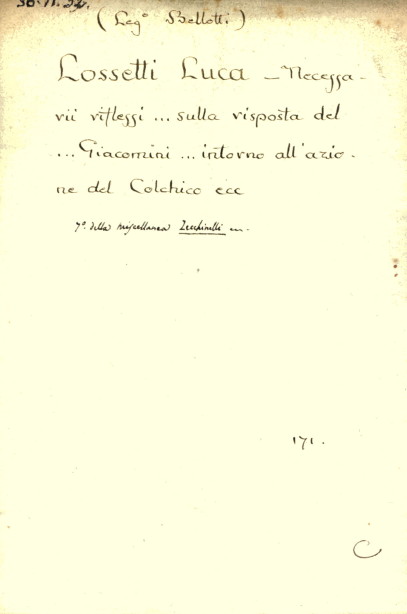 30.11.32.
(Leg° Bellotti)
Lossetti Luca – Necessa-
rii riflessi ... sulla risposta del
... Giacomini ... intorno all'azio-
ne del Colchico ecc
7°. della miscellanea Zecchinelli
171.
C